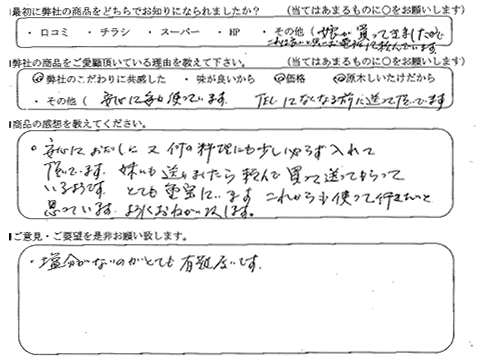 最初に弊社の商品をどちらでお知りになられましたか? (当てはまるものに○をお願いします)
・ 口コミ ・ チラシ ・ スーパー ・ HP ・ その他 ( 娘が買ってきましたので
弊社の商品をご愛顧頂いている理由を教えて下さい。 (当てはまるものに○をお願いします)
弊社のこだわりに共感した ・ 味が良いから 価格 原木しいたけだから
・ その他 ( 安心に 使っています。 なくなる前に送って頂いています
商品の感想を教えてください。
安心におだしに又 他の料理にも少し必ず入れて
頂いています。 妹にも送りましたら 喜んで 買って送ってもらって
いるようです。 とても重宝しています これからも使って行きたいと
思っています。 よろしくおねがい致します。
ご意見・ご要望を是非お願い致します。
・塩分がないのがとても 有難いです。